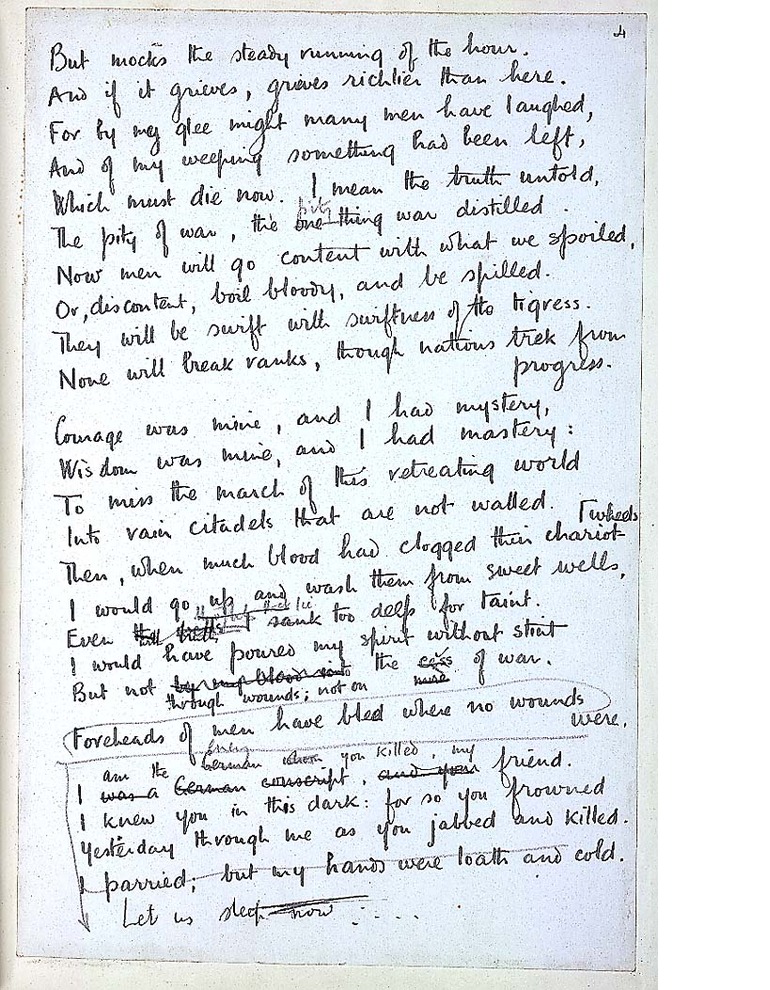 4
But mocks the steady running of the hour.
And if it grieves, grieves richlier than here.
For by my glee might many men have laughed,
And of my weeping something had been left,
Which must die now. I mean the truth untold,
pity
The pity of war, the one thing war distilled.
Now men will go content with what we spoiled,
Or, discontent, boil bloody, and be spilled.
They will be swift with swiftness of the tigress.
None will break ranks, though nations trek from
progress.
Courage was mine, and I had mystery,
Wisdom was mine, and I had mastery:
To miss the march of this retreating world
Into vain citadels that are not walled.
wheels
Then, when much blood had clogged their chariot-
I would go up and wash them from sweet wells,
Even sank too deep for taint.
I would have poured my spirit without stint
But not by my blood into the cess of war.
through wounds; not on
Foreheads of men have bled where no wounds
were.
am the enemy you killed, my
German whom
I was a German conscript, and your friend.
I knew you in this dark: for so you frowned
Yesterday through me as you jabbed and killed.
I parried; but my hands were loath and cold.
Let us sleep now .....